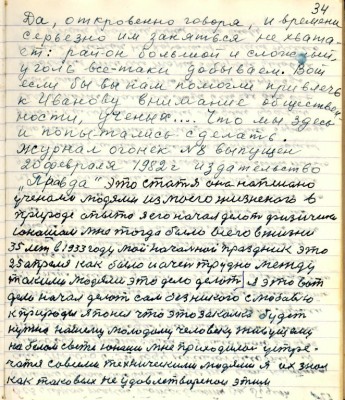 34
Да, откровенно говоря, и времени
серьезно им заняться не хвата-
ет: район большой и сложный,
уголь все-таки добываем. Вот
если бы вы нам помогли привлечь
к Иванову внимание обществен-
ности, ученых.... Что мы здесь
и попытались сделать.
журнал огонек №8 выпущен
20 февраля 1982г издательство
"Правда" это статя она написано
учеными людями из моего жизненого в
природе опыто я его начал делот физически
юношам мне тогда было всего в жизни
35 лет в 1933 году мой начальной праздник это
25 апреля как было и очен трудно между
такими людями это дело делот я это вот
дело начал делот сам без никого с любовю
к природы я понел что это закалка будет
нужна нашему молодому человеку живущему
на белом свете юноши мне приходилос устре-
чатя совсеми техническими людями я их знал
как таковых не удовлетвореных этим